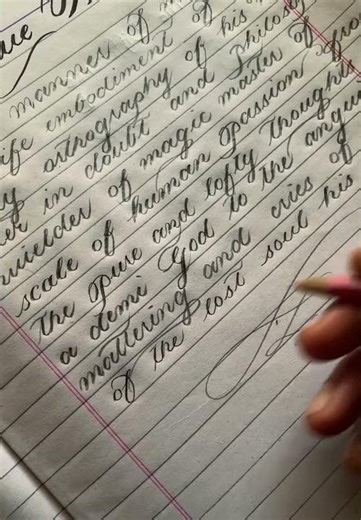 manner of
life embodiment of his
orthography of
in doubt and Philoso
of magic master of
scale of human passion fro
the Pure and lofty thoughts
a demi God to the angui
mattering and cries of
of the lost soul his